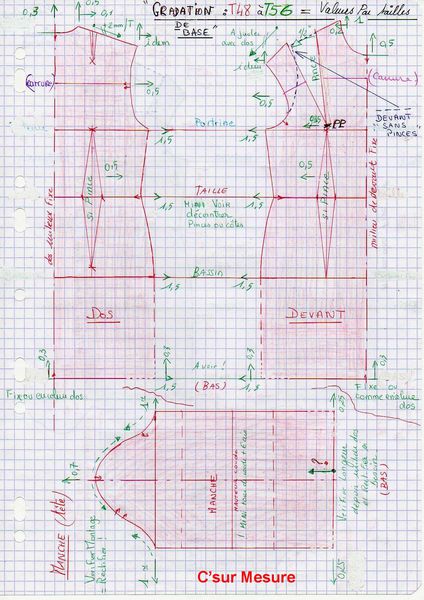 "GRADATION : T48 à T56 = Valeurs Par tailles
DE
BASE"
0,3
0,5
0,1
+2mm/T
idem
A ajuster
au dos
idem
1/2
0,2
0,5
(Carrure)
(Carrure)
0,5
0,5
Pince
DEVANT
SANS
PINCES
0,5
PP
Poitrine
1,5
1,5
0,5
si Pince
TAILLE
MINI VOIR
décintrer
Pinces ou côtés
1,5
1,5
0,5
si Pince
dos milieux Fixe
milieu devant Fixe
BASSIN
1,5
1,5
DOS
DEVANT
0,3
0,3
Avoir!
(BAS)
0,3
0,3
Fixe ou en
du dos
Fixe ou
comme
dos
0,25
0,7
MANCHE (Tête)
Vérifier Montage
= Rectifier!
MANCHE
HAUTEUR COUDE
?
Vérifier Longueur
depuis milieu dos
(BAS)
0,25
C'sur Mesure